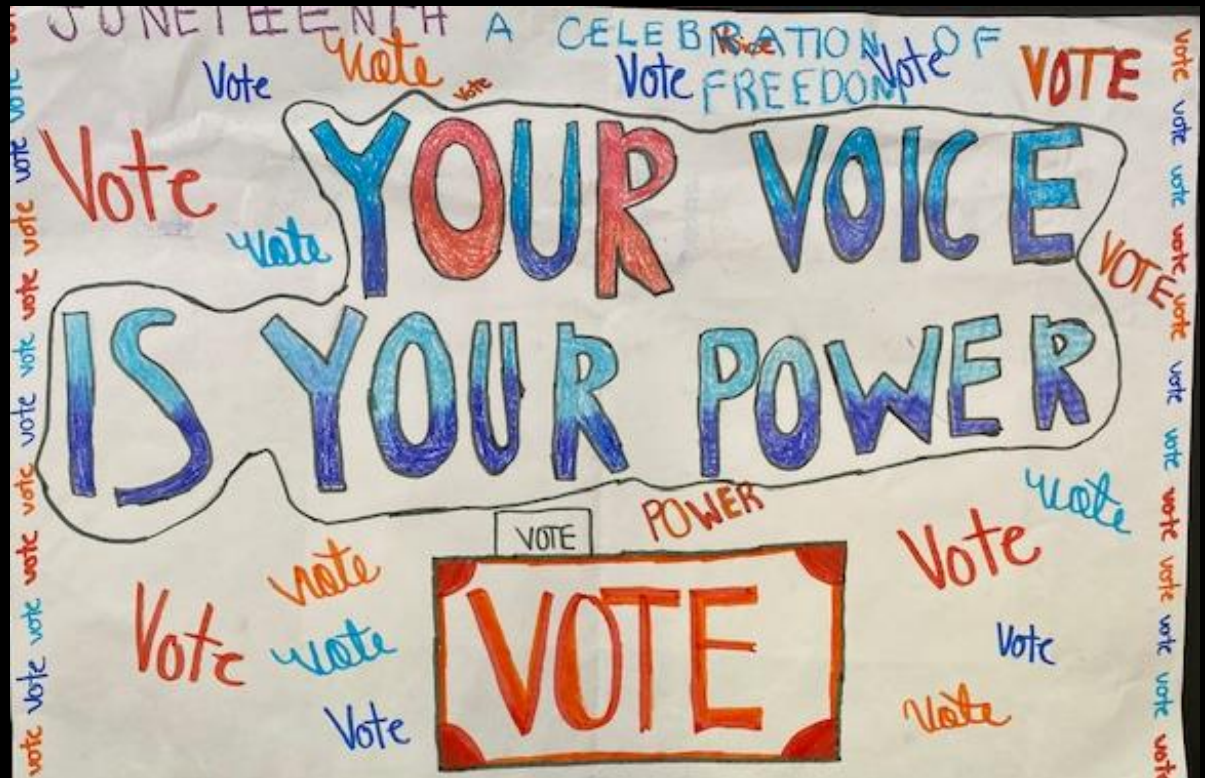 JUNETEENTH A CELEBRATION OF
FREEDOM
Vote
Vote
Vote
Vote
Vote
VOTE
Vote
Vote
YOUR VOICE
VOTE
IS YOUR POWER
Vote
POWER
VOTE
Vote
Vote
VOTE
Vote
Vote
Vote
Vote
Vote
vote vote vote vote vote vote vote vote vote vote vote vote vote
vote vote vote vote vote vote vote vote vote vote vote vote vote